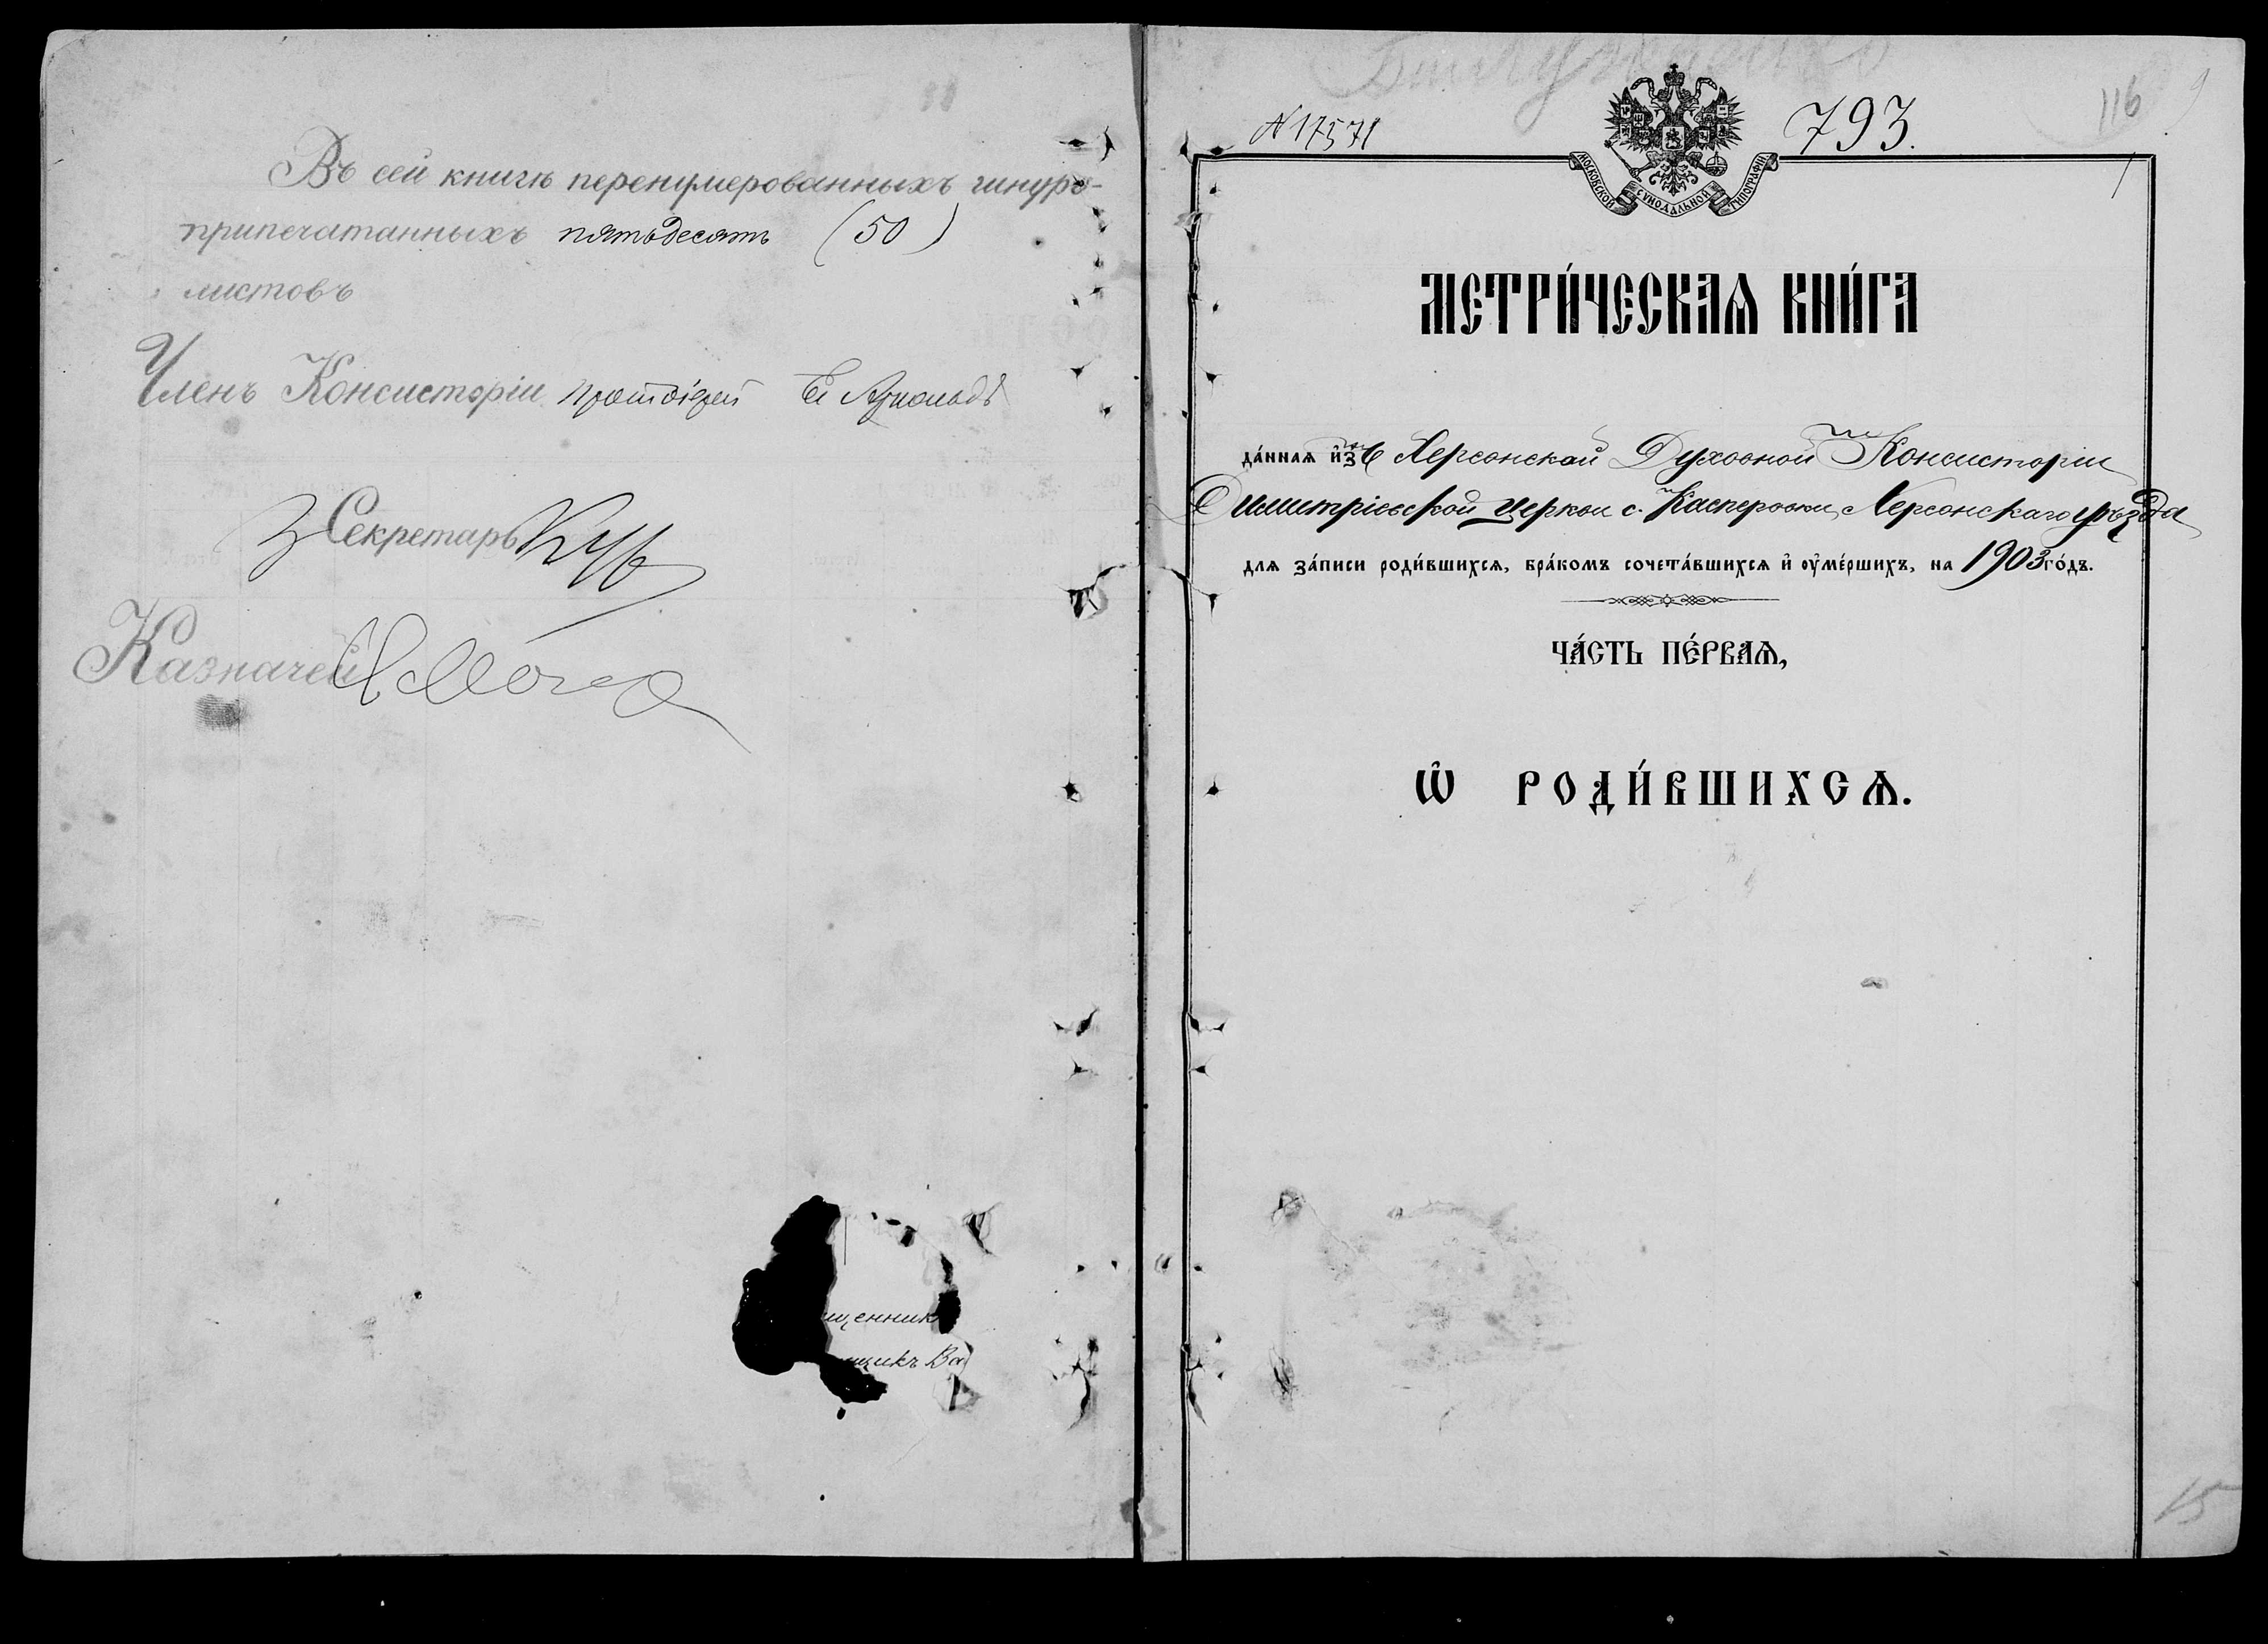 Въ сей книгѣ перенумерованныхъ шнуро-
припечатанныхъ пятьдесятъ (50)
листовъ
Членъ Консисторіи Протоіерей
Секретарь
Казначей
щенник
щикъ Ва
N 17571
793.
116
МОСКОВСКОЙ СѴНОДАЛЬНОЙ ТИПОГРАФІИ
МЕТРИ́ЧЕСКАѦ КНИ́ГА
да́ннаѧ и҆зъ Херсонской Духовной Консисторіи
Димитріевской церкви с. Касперовки, Херсонскаго уѣзда
для за́писи роди́вшихсѧ, бра́комъ сочета́вшихсѧ и҆ ᲂу҆ме́ршихъ, на 1903 го́дъ.
ЧА́СТЬ ПЕ́РВАѦ,
Ѽ РОДИ́ВШИХСѦ.
15